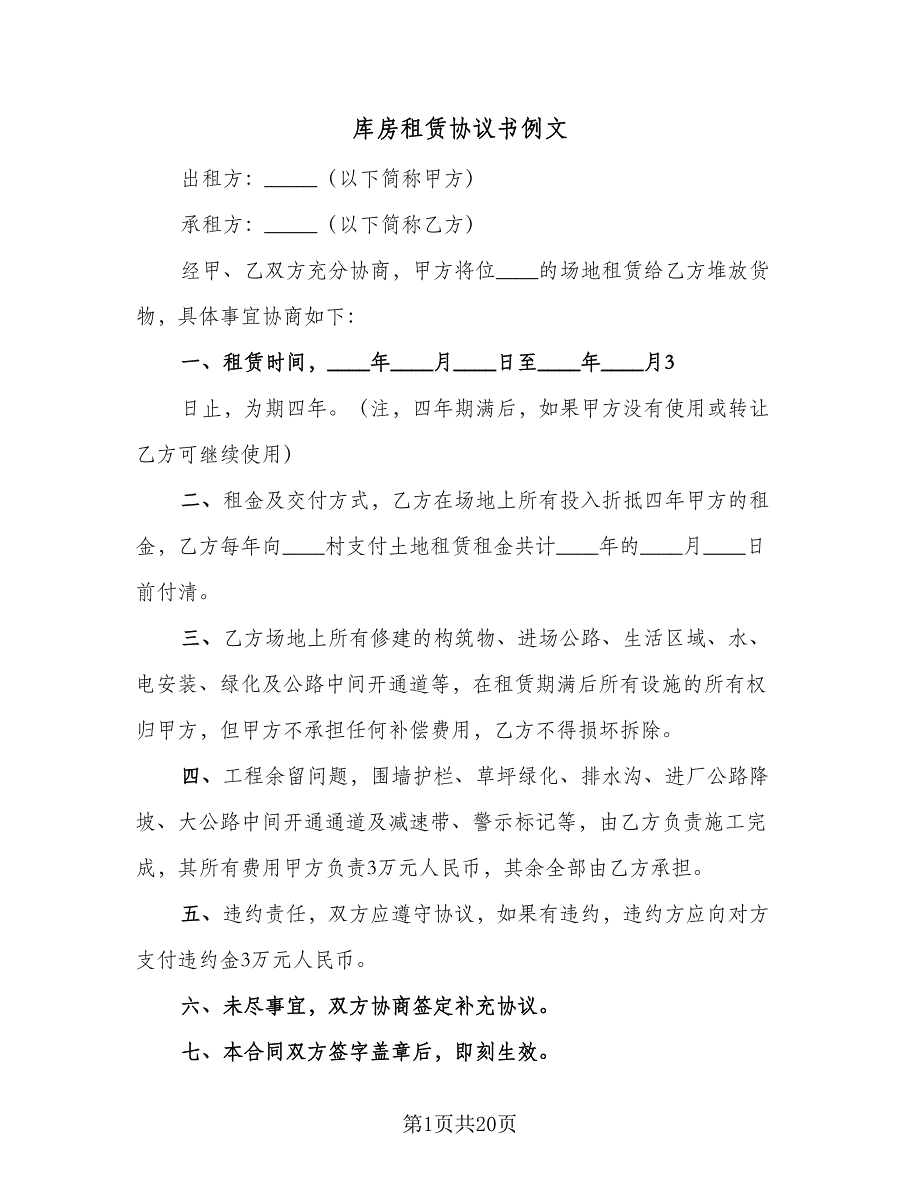 库房租赁协议书例文
出租方：_____（以下简称甲方）
承租方：_____（以下简称乙方）
经甲、乙双方充分协商，甲方将位____的场地租赁给乙方堆放货
物，具体事宜协商如下：
一、租赁时间，____年____月____日至____年____月3
日止，为期四年。（注，四年期满后，如果甲方没有使用或转让
乙方可继续使用）
二、租金及交付方式，乙方在场地上所有投入折抵四年甲方的租
金，乙方每年向____村支付土地租赁租金共计____年的____月____日
前付清。
三、乙方场地上所有修建的构筑物、进场公路、生活区域、水、
电安装、绿化及公路中间开通道等，在租赁期满后所有设施的所有权
归甲方，但甲方不承担任何补偿费用，乙方不得损坏拆除。
四、工程余留问题，围墙护栏、草坪绿化、排水沟、进厂公路降
坡、大公路中间开通通道及减速带、警示标记等，由乙方负责施工完
成，其所有费用甲方负责3万元人民币，其余全部由乙方承担。
五、违约责任，双方应遵守协议，如果有违约，违约方应向对方
支付违约金3万元人民币。
六、未尽事宜，双方协商签定补充协议。
七、本合同双方签字盖章后，即刻生效。
第1页共20页